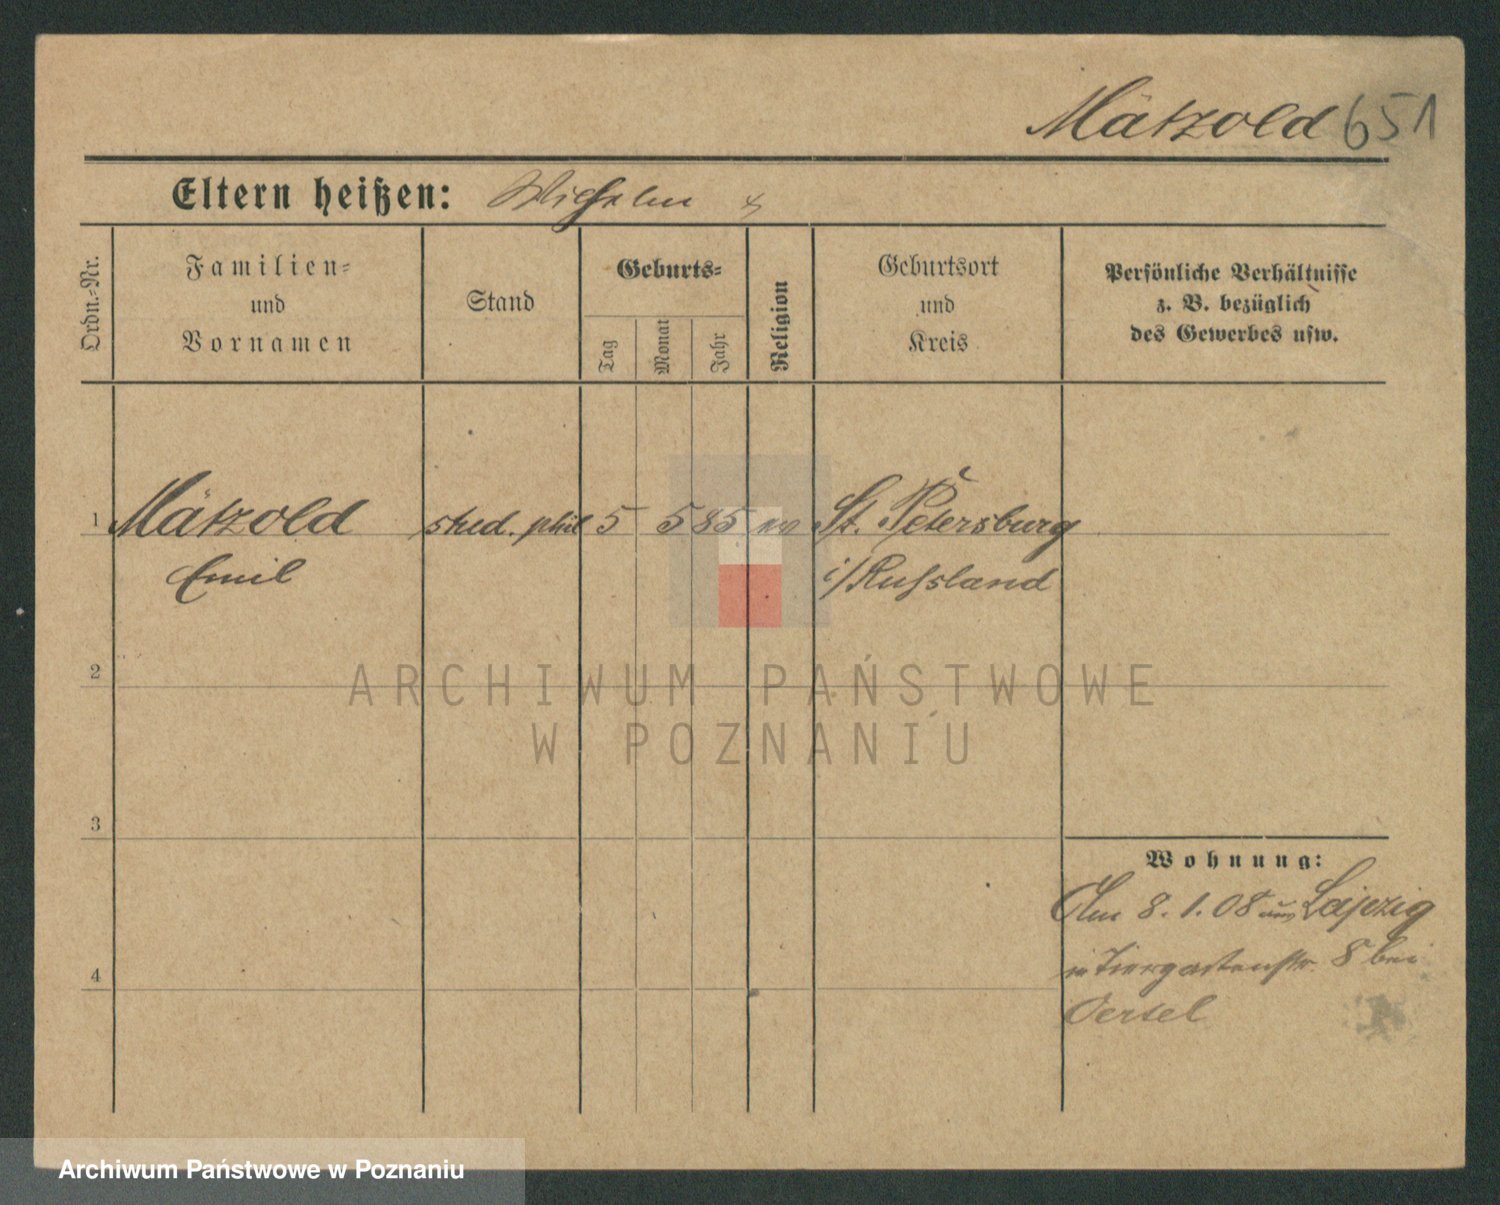 Mätzold 651
Eltern heißen: Wilhelm
Ordn.-Nr.
Familien-
und
Vornamen
Stand
Geburts-
Tag
Monat
Jahr
Religion
Geburtsort
und
Kreis
Persönliche Verhältnisse
z. B. bezüglich
des Gewerbes usw.
1 Mätzold stud. phil 5 5 85 St. Petersburg
Emil i/Russland
2
ARCHIWUM PAŃSTWOWE
W POZNANIU
3
Wohnung:
Am 8.1.08 aus Leipzig
4
in Tiergartenstr. 8 bei
Oertel
Archiwum Państwowe w Poznaniu